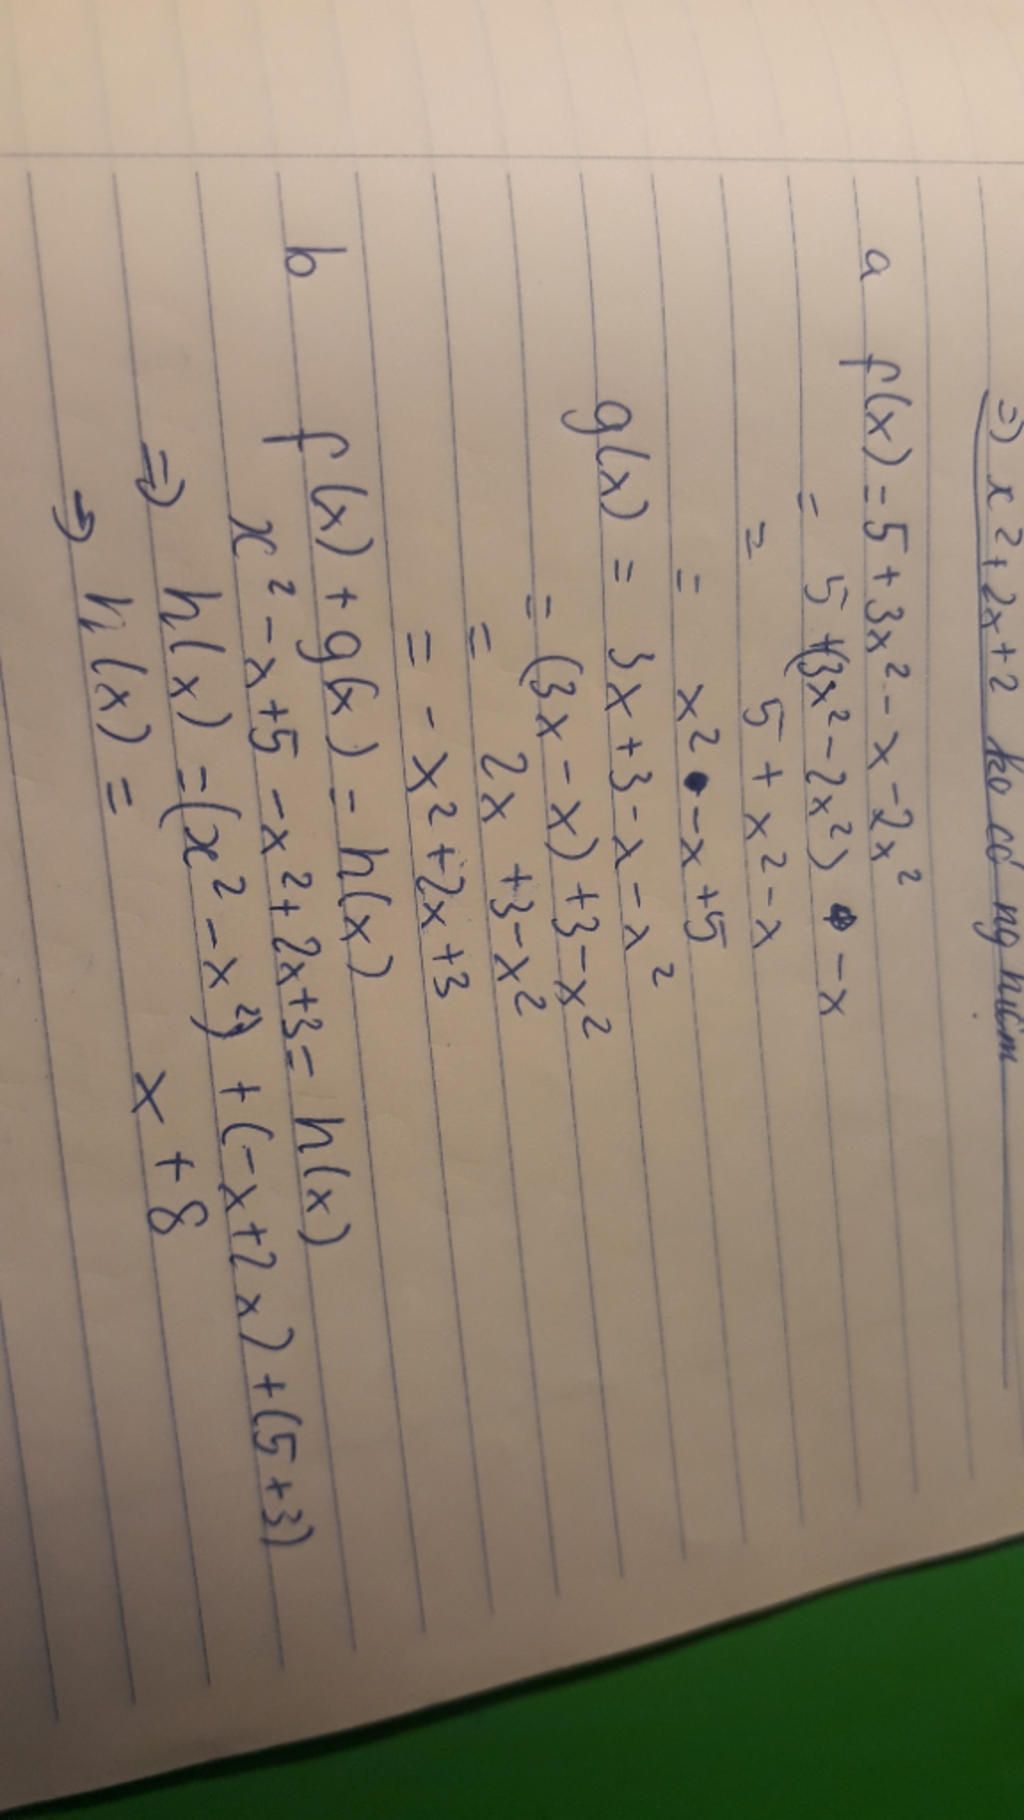 =) x² + 2x + 2 ko có nghiệm
a f(x) = 5 + 3x² - x - 2x²
= 5 + (3x² - 2x²) - x
= 5 + x² - x
= x² - x + 5
g(x) = 3x + 3 - x - x²
= (3x - x) + 3 - x²
= 2x + 3 - x²
= - x² + 2x + 3
b f(x) + g(x) = h(x)
x² - x + 5 - x² + 2x + 3 = h(x)
=> h(x) = (x² - x²) + (-x + 2x) + (5 + 3)
→ h(x) = x + 8